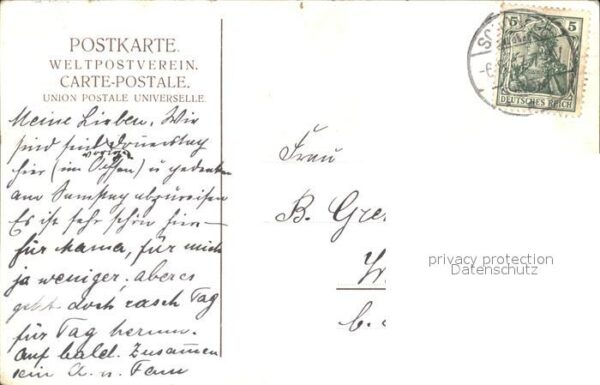 POSTKARTE.
WELTPOSTVEREIN.
CARTE-POSTALE.
UNION POSTALE UNIVERSELLE.
Meine Lieben. Wir
sind seit Donnerstag
voriger
hier (im Ochsen) u gedenken
am Samstag abzureisen
Es ist sehr schön hier –
für Mama, für mich
ja weniger, aber es
geht doch rasch Tag
für Tag herum.
Auf bald. Zusammen
ein A. u. Fam
5 5
DEUTSCHES REICH
SCH
-6.
Frau
B. Gre
privacy protection
Datenschutz
b.